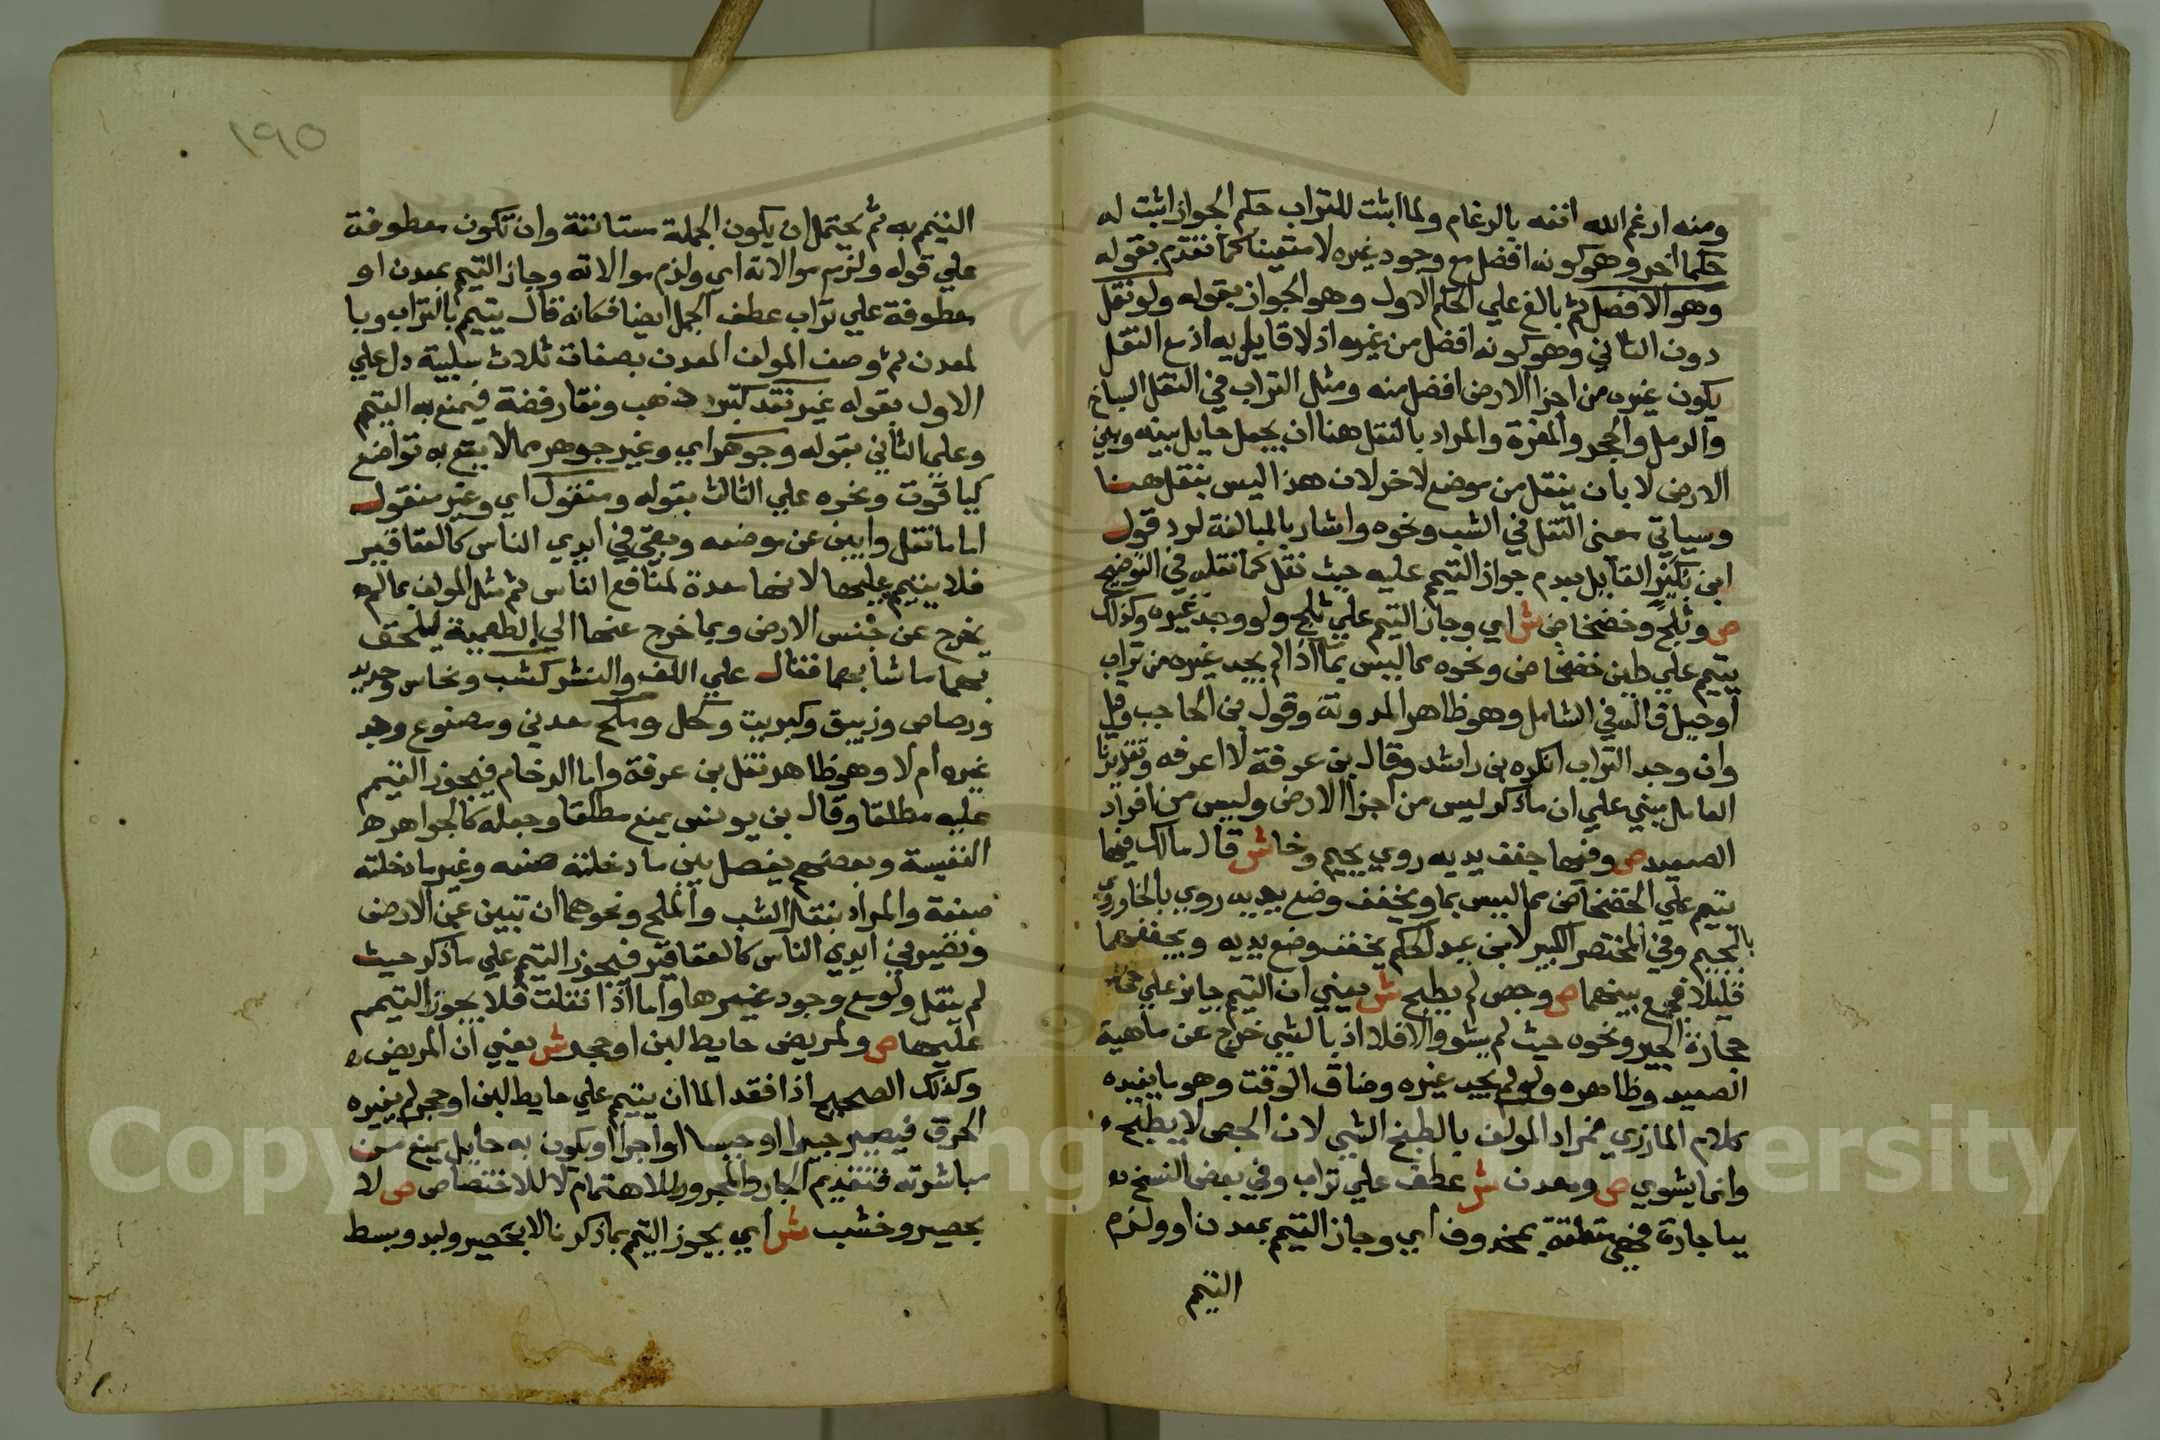 ومنه ارغم الله انفه بالرغام ولما اثبت للتراب حكم الجواز اثبت له
حكما اخر وهو كونه افضل مع وجود غيره لا متعينا كما تقدم بقوله
وهو الافضل ثم بالغ علي الحكم الاول وهو الجواز بقوله ولو نقل
دون الثاني وهو كونه افضل من غيره اذ لا قايل به اذ مع النقل
يكون غيره من اجزا الارض افضل منه ومثل التراب في النقل السباخ
والرمل والحجر والمغرة والمراد بالنقل هنا ان يجعل حايل بينه وبين
الارض لا بان ينقل من موضع لاخر لان هذا ليس بنقل هنا
وسياتي معني النقل في الشب ونحوه واشار بالمبالغة لرد قول
ابن بكير القايل بعدم جواز التيمم عليه حيث نقل كما نقله في التوضيح
ص وثلج وخضخاض ش اي وجاز التيمم علي ثلج ولو وجد غيره وكذلك
يتيمم علي طين خضخاض ونحوه مما ليس بما اذا لم يجد غيره من تراب
او جبل قاله في الشامل وهو ظاهر المدونة وقول بن الحاجب وقيل
وان وجد التراب انكره بن راشد وقال بن عرفة لا اعرفه وتقريرنا
العامل مبني علي ان ما ذكر ليس من اجزا الارض وليس من افراد
الصعيد ص وفيها جفف يديه روي بجيم وخا ش قال مالك فيها
يتيمم علي الخضخاض مما ليس بما ويخفف وضع يديه روي بالخا وروي
بالجيم وفي المختصر الكبير لابن عبد الحكم يخفف وضع يديه ويجففهما
قليلا فجمع بينهما ص وجص لم يطبخ ش يعني ان التيمم جايز علي
حجارة الجير ونحوه حيث لم يشو والا فلا اذ بالشي خرج عن ماهية
الصعيد وظاهره ولو لم يجد غيره وضاق الوقت وهو ما يفيده
كلام المازري فمراد المولف بالطبخ الشي لان الجص لا يطبخ
وانما يشوي ص ومعدن ش عطف علي تراب وفي بعض النسخ
بيا جارة فهي متعلقة بمحذوف اي وجاز التيمم بمعدن او ولزم
التيمم
١٩٥
التيمم به ثم يحتمل ان يكون الجملة مستانفة وان تكون معطوفة
علي قوله ولزم موالاته اي ولزم موالاته وجاز التيمم بمعدن او
معطوفة علي تراب عطف الجمل ايضا فكانه قال يتيمم بالتراب وبا
لمعدن ثم وصف المولف المعدن بصفات ثلاث سلبية دل علي
الاول بقوله غير نقد كتبر ذهب ونقار فضة فيمنع به التيمم
وعلي الثاني بقوله وجوهر اي وغير جوهر مما لا يقع به تواضع
كياقوت ونحوه علي الثالث بقوله ومنقول اي وغير منقول
اما ما نقل وابين عن موضعه وبقي في ايدي الناس كالعقاقير
فلا يتيمم عليها لانها معدة لمنافع الناس ثم مثل المولف بما لم
يخرج عن جنس الارض وبما خرج عنها الي الطعمية ليلحق
بهما ما شابههما فقال علي اللف والنشر كشب ونحاس وحديد
ورصاص وزيبق وكبريت وكحل وملح معدني ومصنوع وجد
غيره ام لا وهو ظاهر نقل بن عرفة واما الرخام فيجوز التيمم
عليه مطلقا وقال بن يونس يمنع مطلقا وجعله كالجواهر
النفيسة وبعضهم يفصل بين ما دخلته صنعه وغير ما دخلته
صنعة والمراد بنقل الشب والملح ونحوهما ان تبين عن الارض
وتصير في ايدي الناس كالعقاقير فيجوز التيمم علي ما ذكر حيث
لم ينقل ولو مع وجود غيرها واما اذا نقلت فلا يجوز التيمم
عليها ص ولمريض حايط لبن او حجر ش يعني ان المريض
وكذلك الصحيح اذا فقد الما ان يتيمم علي حايط لبن او حجر لم يغيره
الحرق فيصير جيرا او جبسا او اجرا او يكون به حايل يمنع من
مباشرته فتقديم الجار والمجرور للاهتمام لا للاختصاص ص لا
بحصير وخشب ش اي يجوز التيمم بما ذكرنا لا بحصير ولبد وبسط
Copyright © King Saud University